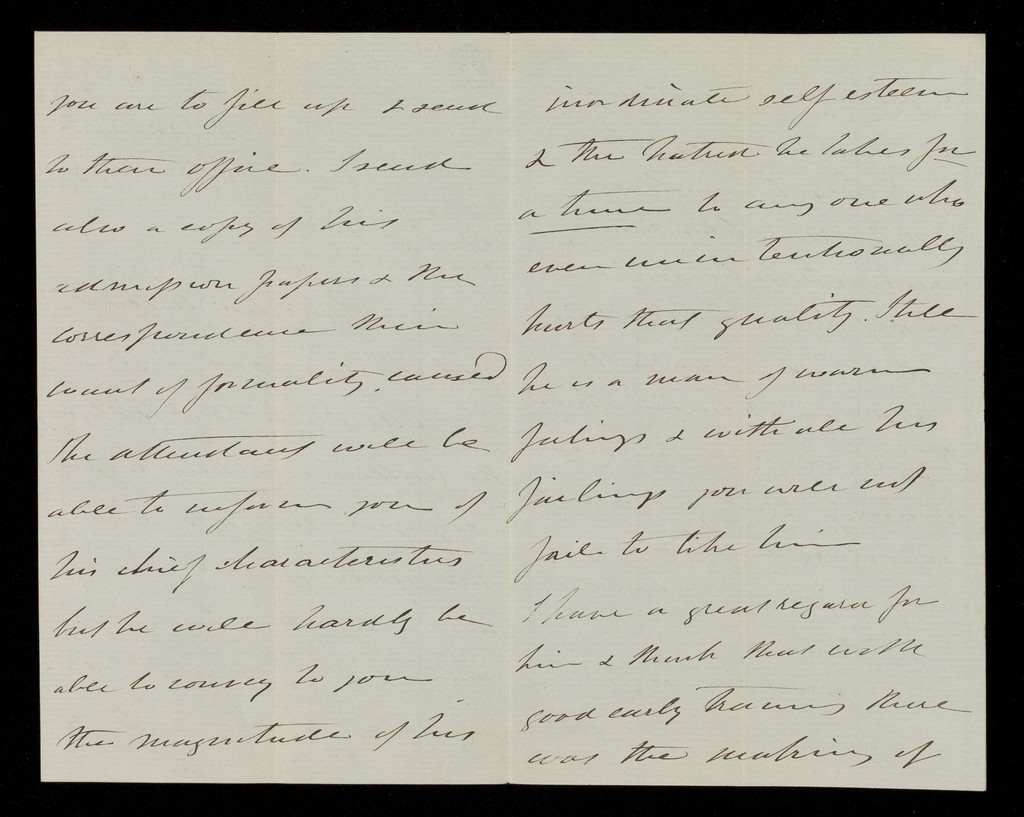 you are to fill up & send
to their office. I send
also a copy of his
admission papers & the
correspondence their
want of formality, caused
The attendant will be
able to inform you of
his chief characteristics
but he will hardly be
able to convey to you
the magnitude of his
inordinate self esteem
& the hatred he takes for
a time to any one who
even unintentionally
hurts that quality. Still
he is a man of warm
feelings & with all his
failings you will not
fail to like him
I have a great regard for
him & think that with
good early training there
was the making of